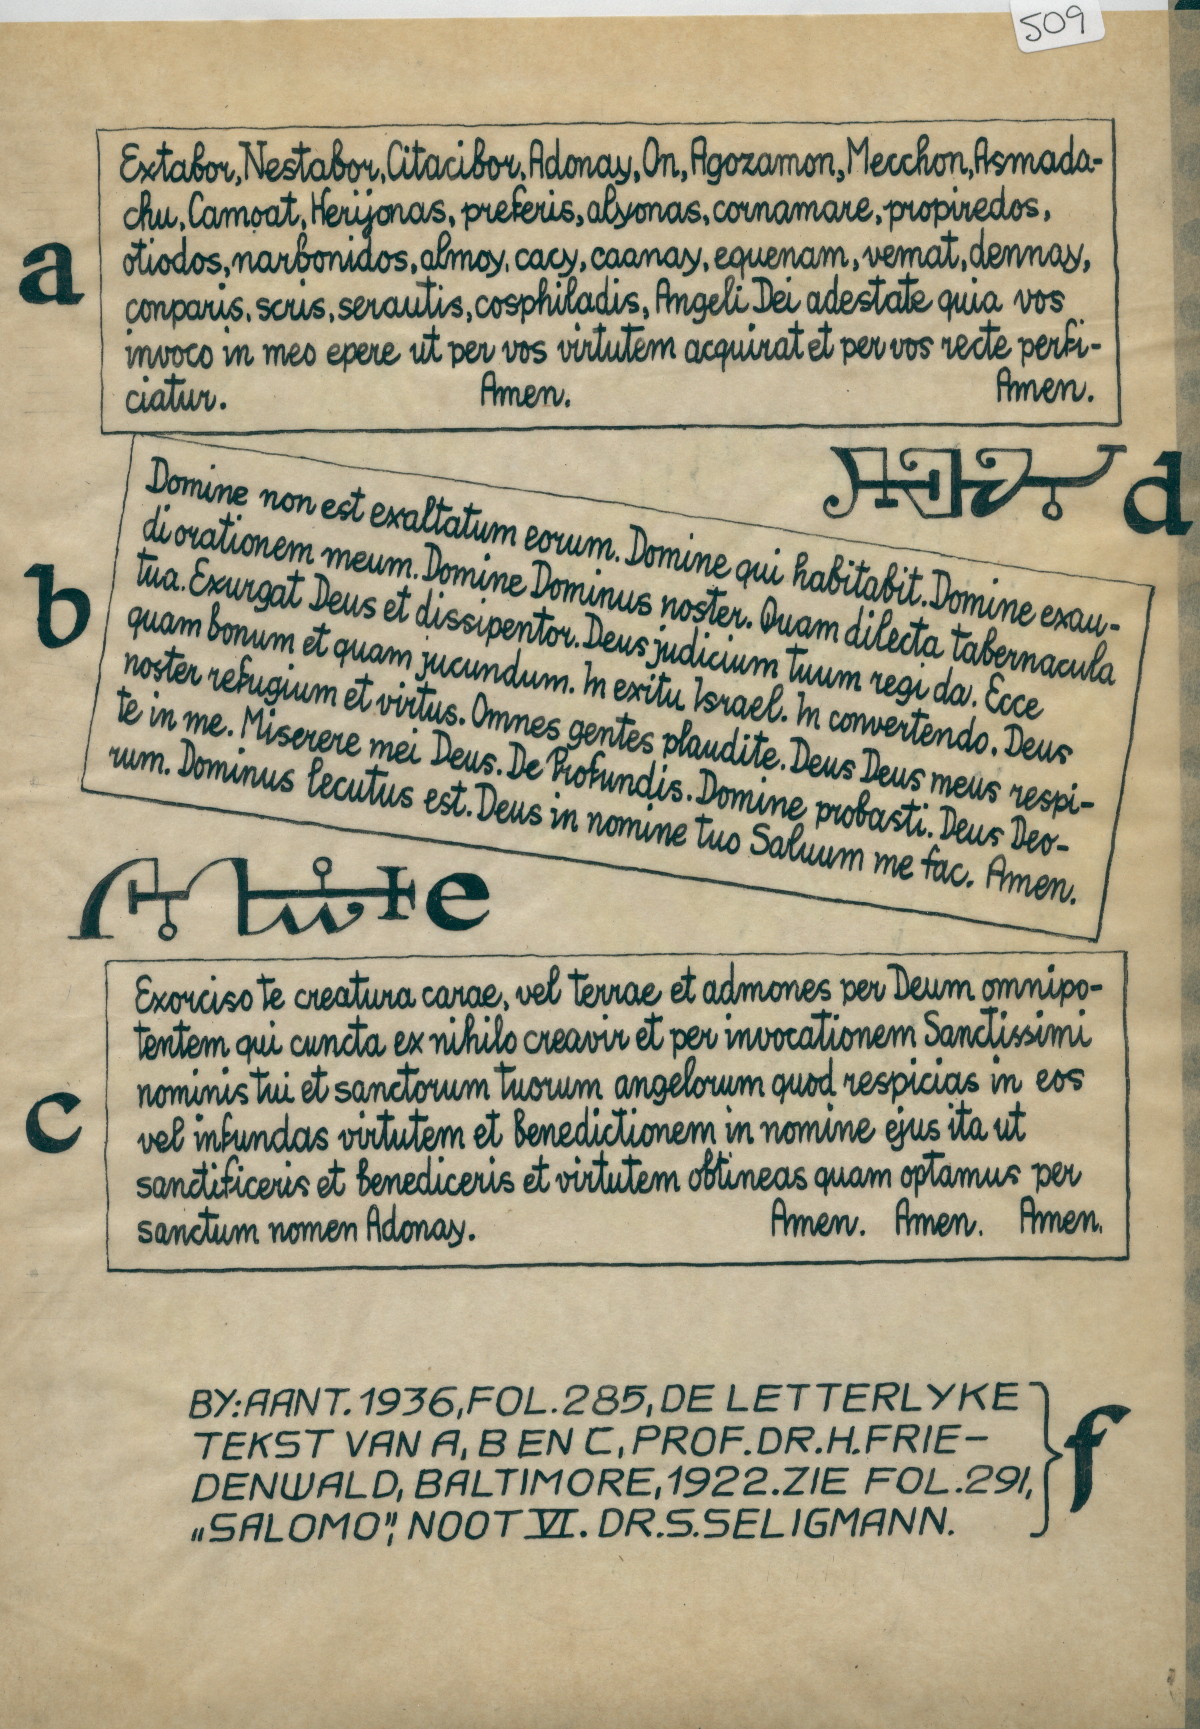 509
Extabor, Nestabor, Citacibor, Adonay, On, Agozamon, Mecchon, Asmada-
chu, Camoat, Herijonas, preferis, alyonas, cornamare, propiredos,
a
otiodos, narbonidos, almoy, cacy, caanay, equenam, vemat, dennay,
conparis, scris, serautis, cosphiladis, Angeli Dei adestate quia vos
invoco in meo epere ut per vos virtutem acquirat et per vos recte perfi-
ciatur. Amen. Amen.
d
b
Domine non est exaltatum eorum. Domine qui habitabit. Domine exau-
di orationem meum. Domine Dominus noster. Quam dilecta tabernacula
tua. Exurgat Deus et dissipentor. Deus judicium tuum regi da. Ecce
quam bonum et quam jucundum. In exitu Israel. In convertendo. Deus
noster refugium et virtus. Omnes gentes plaudite. Deus Deus meus respi-
te in me. Miserere mei Deus. De Profundis. Domine probasti. Deus Deo-
rum. Dominus lecutus est. Deus in nomine tuo Saluum me fac. Amen.
e
Exorciso te creatura carae, vel terrae et admones per Deum omnipo-
tentem qui cuncta ex nihilo creavir et per invocationem Sanctissimi
nominis tui et sanctorum tuorum angelorum quod respicias in eos
c
vel infundas virtutem et benedictionem in nomine ejus ita ut
sanctificeris et benediceris et virtutem obtineas quam optamus per
sanctum nomen Adonay. Amen. Amen. Amen.
BY: AANT. 1936, FOL. 285, DE LETTERLYKE
TEKST VAN A, B EN C, PROF. DR. H. FRIE-
f
DENWALD, BALTIMORE, 1922. ZIE FOL. 291,
„SALOMO”, NOOT VI. DR. S. SELIGMANN.